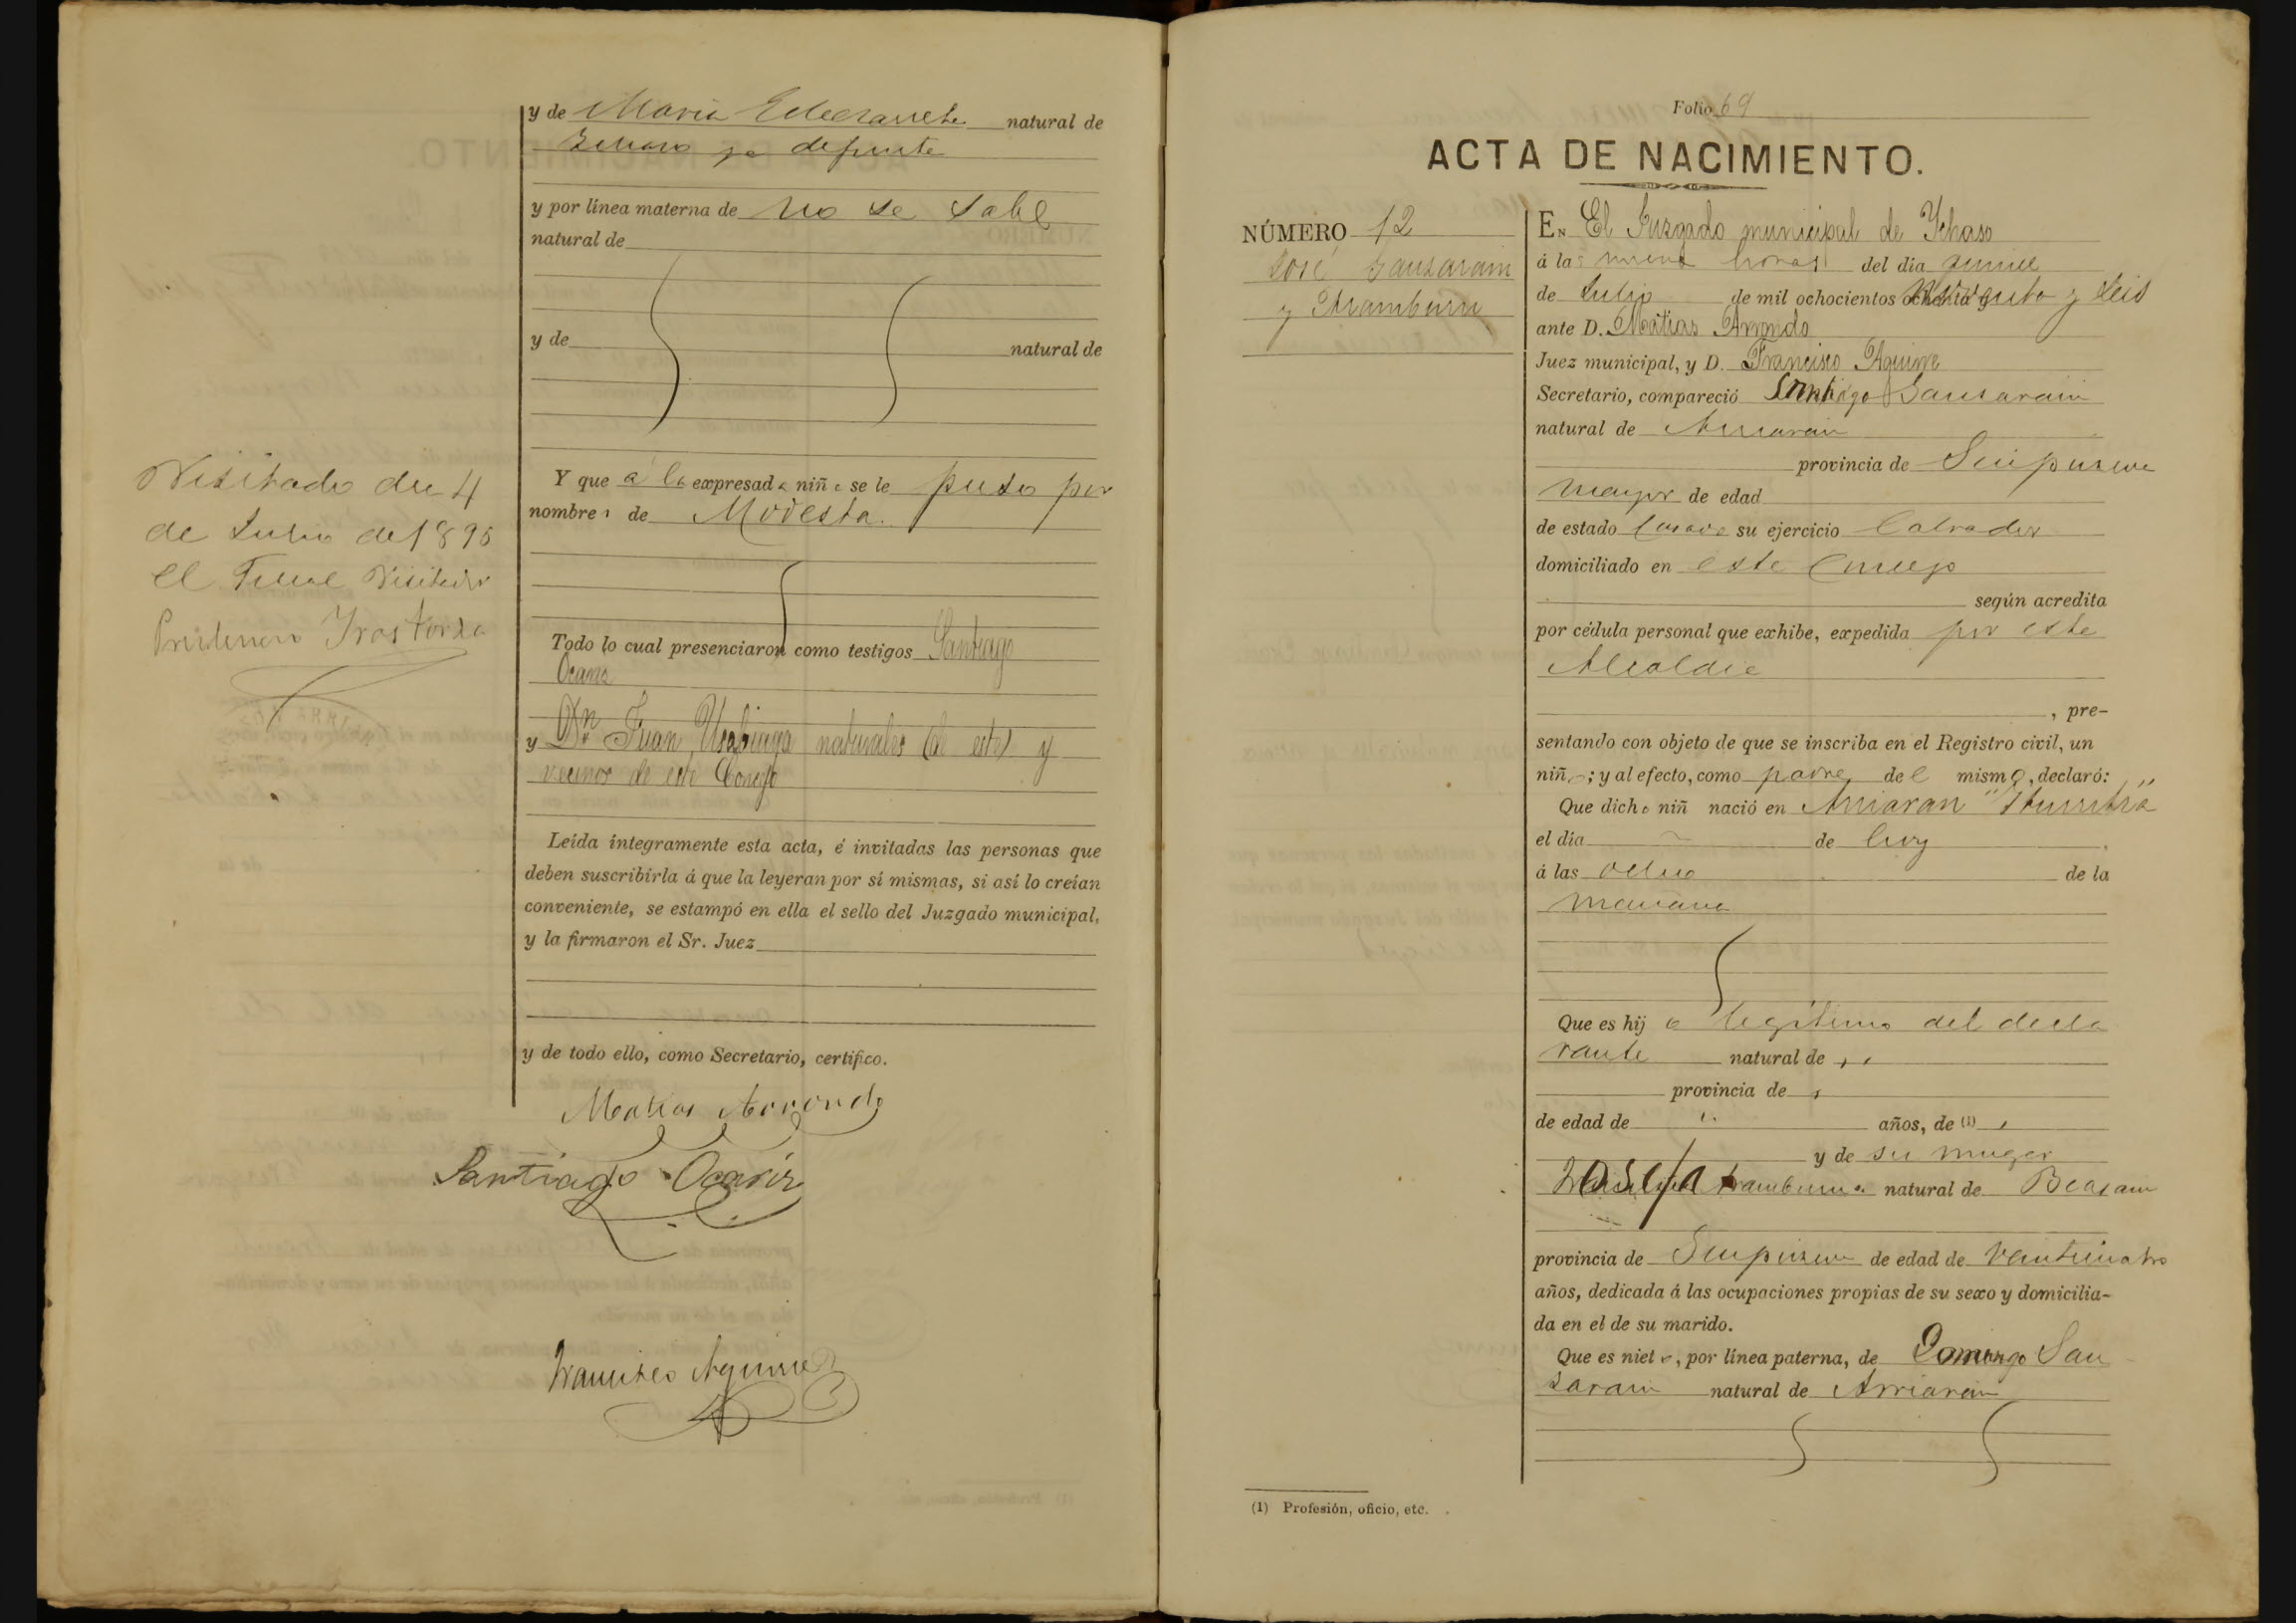 y de Maria Echezarreta natural de
Ichaso ya defunta
y por línea materna de no se sabe
natural de
y de natural de
Y que a la expresada niña se le puso por
nombre de Modesta.
Todo lo cual presenciaron como testigos Santiago
Ocariz
y Dn Juan Usabiaga naturales (de este) y
vecinos de este Concejo
Leída íntegramente esta acta, é invitadas las personas que
deben suscribirla á que la leyeran por sí mismas, si así lo creían
conveniente, se estampó en ella el sello del Juzgado municipal,
y la firmaron el Sr. Juez
y de todo ello, como Secretario, certifico.
Matias Arrondo
Santiago Ocariz
Francisco Aguirre
Visitado en 4
de Julio de 1896
el Visitador
(1) Profesión, oficio, etc.
Folio 69
ACTA DE NACIMIENTO.
NÚMERO 12
José Sansarain
y Aramburu
EN El Juzgado municipal de Ychaso
á las nueve horas del dia quince
de Julio de mil ochocientos noventa y seis
ante D. Matias Arrondo
Juez municipal, y D. Francisco Aguirre
Secretario, compareció Santiago Sansarain
natural de Arriaran
provincia de Guipuzcoa
mayor de edad
de estado casado su ejercicio labrador
domiciliado en este Concejo
según acredita
por cédula personal que exhibe, expedida por esta
Alcaldia
, pre-
sentando con objeto de que se inscriba en el Registro civil, un
niño; y al efecto, como padre del mismo, declaró:
Que dicho niñ nació en Arriaran "Iturritza"
el día de hoy
á las ocho de la
mañana
Que es hijo legitimo del decla
rante natural de ,,
provincia de ,
de edad de " años, de (1) ,
y de su muger
Josefa Aramburu natural de Beasain
provincia de Guipuzcoa de edad de veinticuatro
años, dedicada á las ocupaciones propias de su sexo y domicilia-
da en el de su marido.
Que es nieto, por línea paterna, de Domingo San
sarain natural de Arriaran
(1) Profesión, oficio, etc.